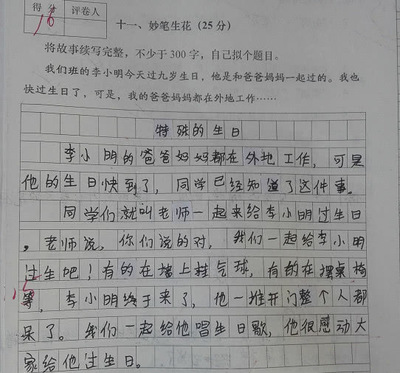 得分 评卷人
16
十一、妙笔生花(25分)
将故事续写完整,不少于300字,自己拟个题目。
我们班的李小明今天过九岁生日,他是和爸爸妈妈一起过的。我也
快过生日了,可是,我的爸爸妈妈都在外地工作……
特殊的生日
李小明的爸爸妈妈都在外地工作,可是
他的生日快到了,同学已经知道了这件事。
同学们就叫老师一起来给李小明过生日
。老师说,你们说的对,我们一起给李小明
过生吧!有的在墙上挂气球,有的在摆桌椅
等,李小明终于来了,他一推开门整个人都
呆了。我们一起给他唱生日歌,他很感动大
家给他过生日。